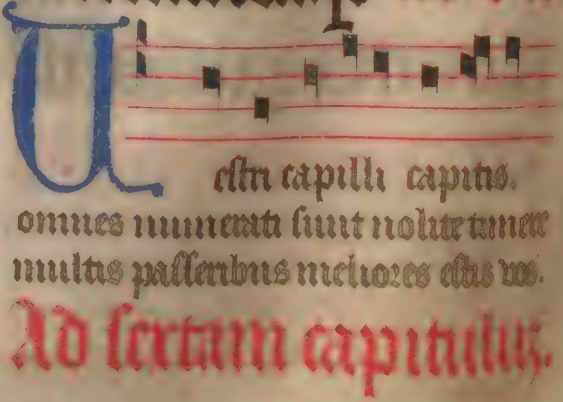 Vestri capilli capitis.
omnes numerati sunt nolite timere
multis passeribus meliores estis vos.
Ad sextam capitulum.